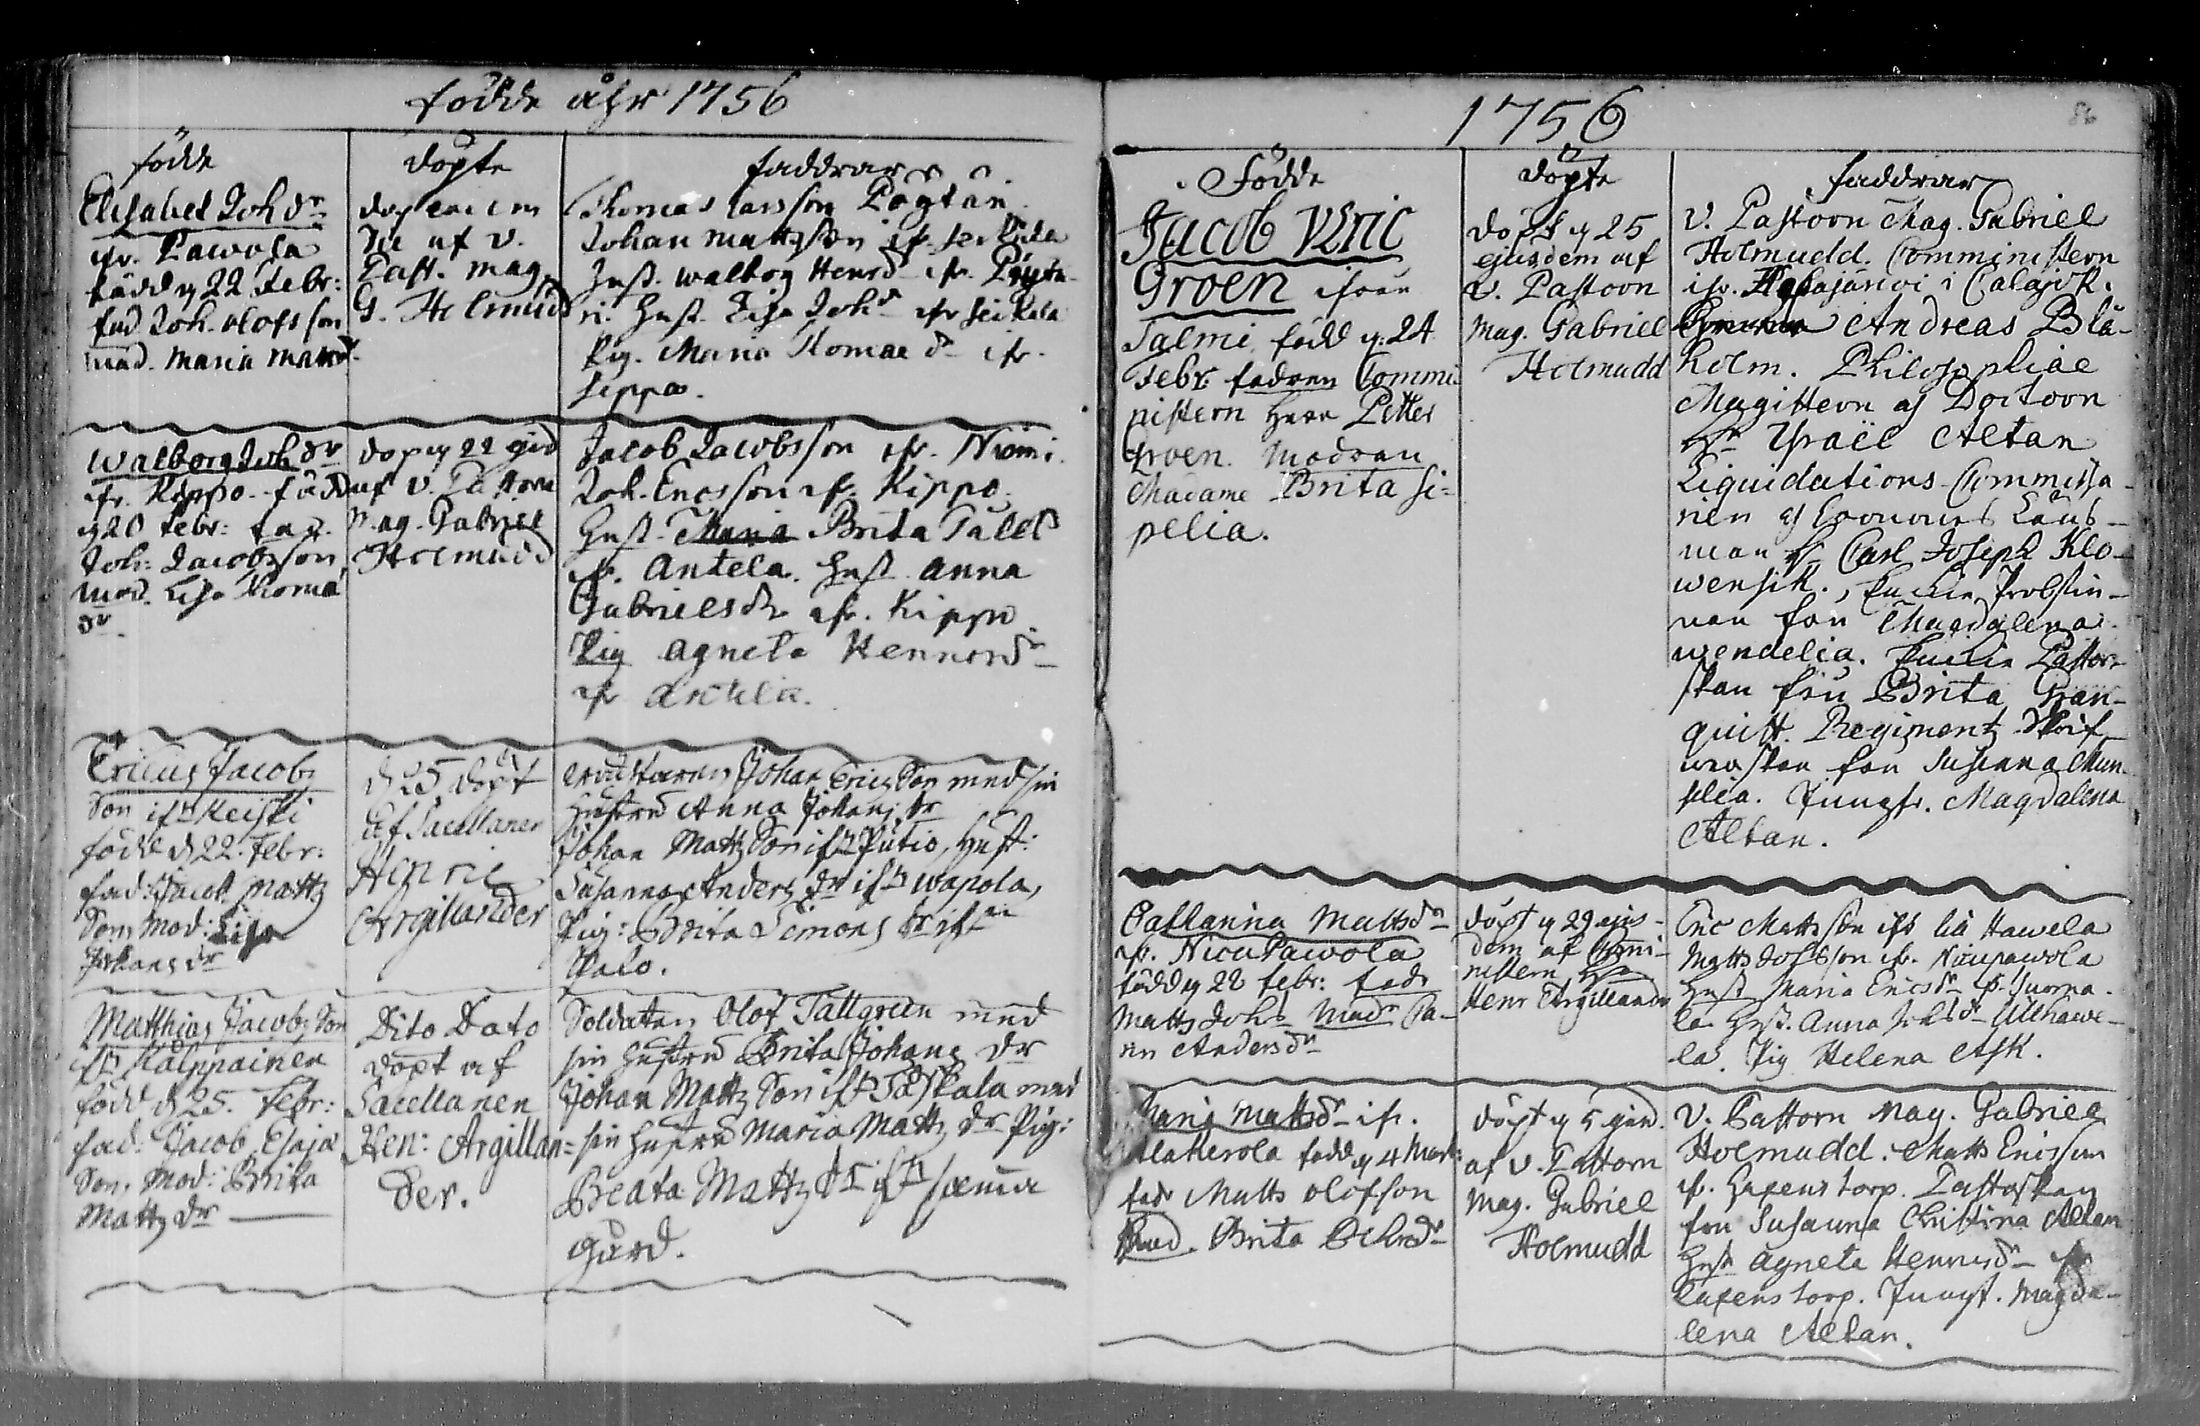 födde åhr 1756
födde
Elisabet Joh dr
ifr. Pawola
född y 22 Febr:
fad Joh. olofsson
mad. Maria Mattsd
döpte
dag
af v.
Past. mag
G. Holmudd
faddrar
Thomas Larsson
Johan Mattsson ifr.
Hust. Walbog Henrd ifr.
Hust. Lisa Joh d ifr Seikala
Pig. Maria Thomae d ifr.
Seppä.
Walborg Joh dr
ifr. Kippo. född
y 20 Febr: fad.
Joh: Jacobsson
mod. Lisa Thoma
dr
dop y 22 ejusd
af v. Pastorn
Mag. Gabriel
Holmudd
Jacob Jacobsson ifr. Niemi.
Joh. Ericsson ifr. Kippo.
Hust. Maria Brita
ifr. Antela. Hust. Anna
Gabrielsdr ifr. Kippo
Pig Agneta Hennersdr
ifr Antela.
Ericus Jacobs
Son ifrn Keiski
född d 22. Febr:
fad: Jacob Matts
Son, Mod: Lisa
Johans dr
d 25 döpt
af Sacellanen
Henric
Argillander
Johan Erics Son med sin
Hustru Anna Johans dr
Johan Matts Son ifrn Putio, Hust:
Susanna Anders dr ifrn Wapola,
Pig: Brita Simons dr ifrn
Palo.
Matthias Jacobs Son
ifrn Kalppainen
född d 25. Febr:
fad: Jacob Esajæ
Son, Mod: Brita
Matts dr
Dito Dato
döpt af
Sacellanen
Hen: Argillan=
der.
Soldaten Olof Tallgreen med
sin hustru Brita Johans dr
Johan Matts Son ifrn Taskala med
sin hustru Maria Matts dr Pig:
Beata Matts dr ifrn samma
gård.
1756
86
Födde
Jacob Eric
Groen ifrån
Salmi, född y. 24
Febr. fadren Commi
nistern Herr Petter
Groen. Modran
Madame Brita Si=
pelia.
döpte
döpt y 25
ejusdem af
v. Pastorn
Mag. Gabriel
Holmudd
faddrar
V. Pastorn Mag. Gabriel
Holmudd. Comministern
ifr. Halajärvi i Calajok.
Andreas Blå-
holm. Philosophiae
Magistern och Doctorn
Hr Israël Altan
Liquidations Commissa-
rien och Cronones Läns-
man Hr Carl Joseph Klo-
wensik., Probstin-
nan fru Magdalena
Wendelia. Pastor-
skan fru Brita Gran-
quist. Regiments Skrif-
werskan fru Susanna Mun-
selia. Jungfr. Magdalena
Altan.
Catharina Mattsdr
ifr. Nicu Pawola
född y 22 febr: fadr
Matts Johs Modr Ca-
rin Andersdr
döpt y 29 ejus-
dem af Commi-
nistern Hr
Henr Argillander
Eric Mattsson ifr Lill Hawela
Matts Johsson ifr. Nicupawola
Hust Maria Ericsdr ifr. Juorna-
la Hust. Anna Johsdr Ullhawe-
la. Pig Helena Ask.
Maria Mattsdr ifr.
Alakerola född y 4 Mart:
fadr Matts Olofson
Mod. Brita
döpt y 5 ejusd.
af v. Pastorn
Mag. Gabriel
Holmudd
V. Pastorn Mag. Gabriel
Holmudd. Matts Ericsson
ifr. Capenstorp. Pastorskan
fru Susanna Christina Altan
Hust Agneta Hennersdr ifr
Capenstorp. Jungf. Magda-
lena Altan.